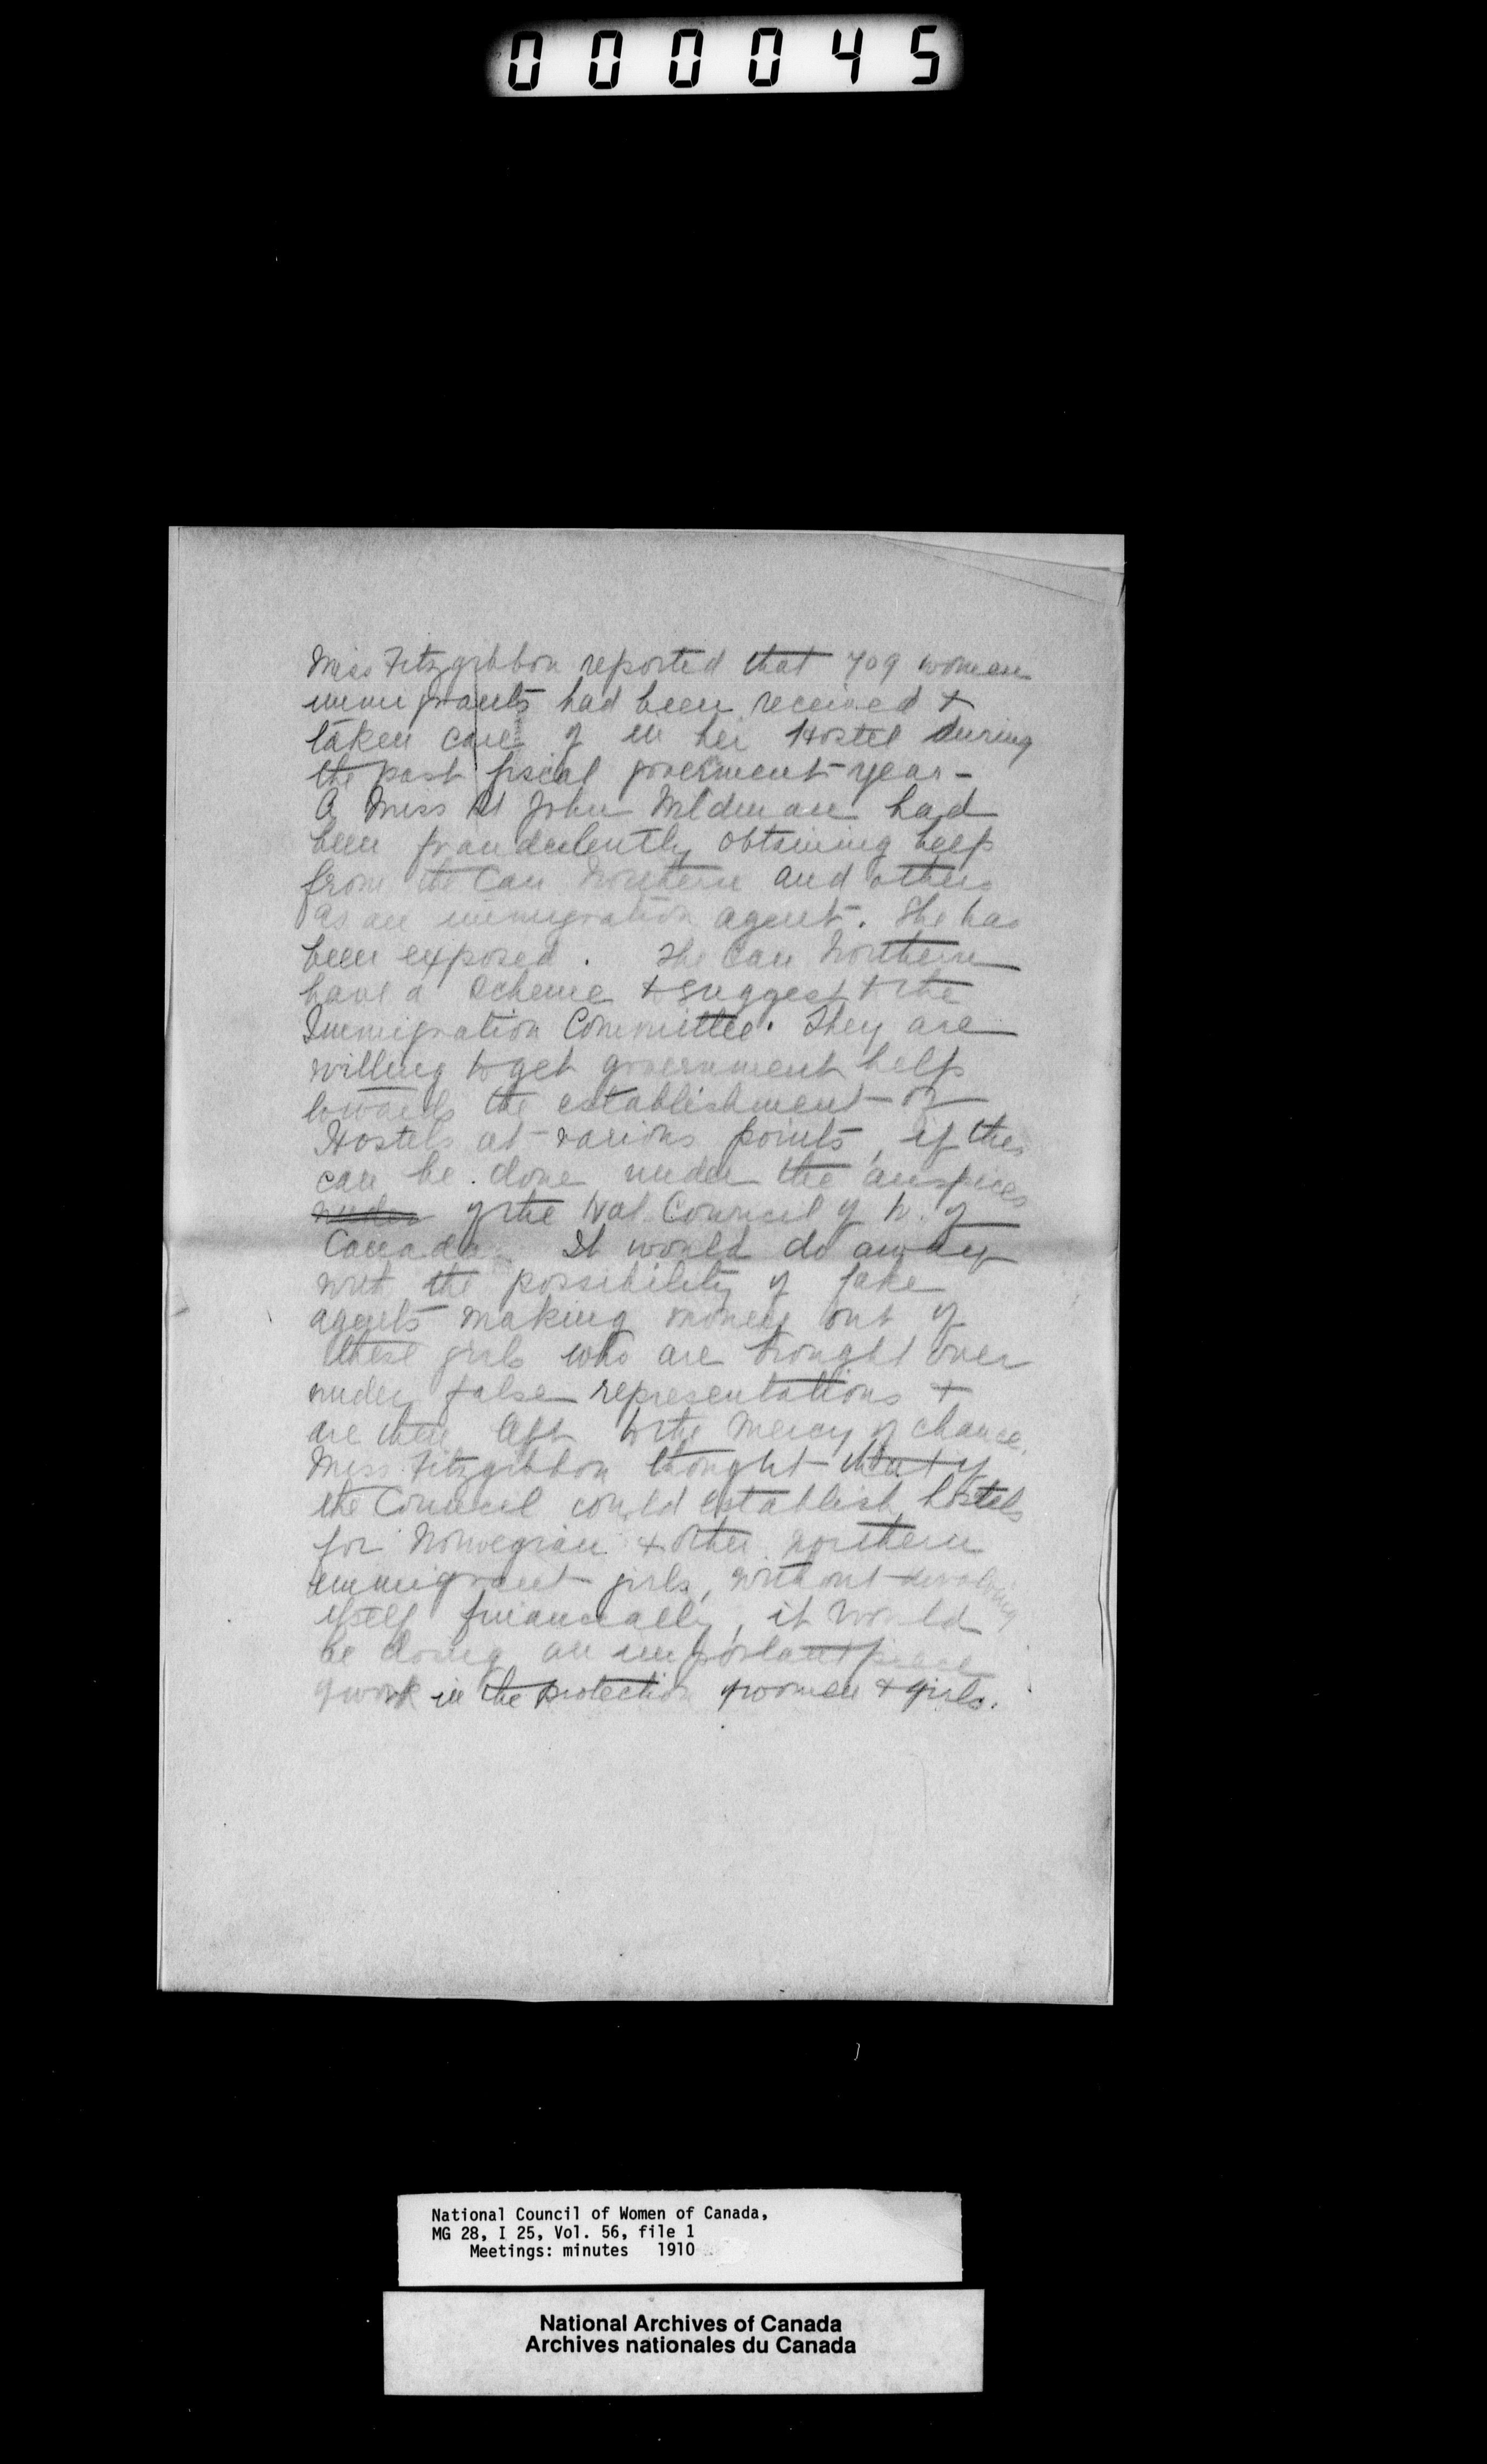 000045
Miss Fitzgibbon reported that 709 women
immigrants had been received &
taken care of in her Hostel during
the past fiscal goverment year -
A Miss St John Mildmare had
been fraudulently obtaining help
from the Can Northern and others
as an immigration agent. She has
been exposed. The Can Northern
have a scheme to suggest to the
Immigration Committee. They are
willing to get government help
towards the establishment of
Hostels at various points, if this
can be done under the auspices
under of the Nat. Council of W. of
Canada. It would do away
with the possibility of fake
agents making money out of
these girls who are brought over
under false representations &
are then left to the mercy of chance.
Miss Fitzgibbon thought that if
the Council could establish hostels
for Norwegian & other northern
immigrant girls, without involving
itself financially, it would
be doing an important piece
of work in the protection of women & girls.
National Council of Women of Canada,
MG 28, I 25, Vol. 56, file 1
Meetings: minutes 1910
National Archives of Canada
Archives nationales du Canada